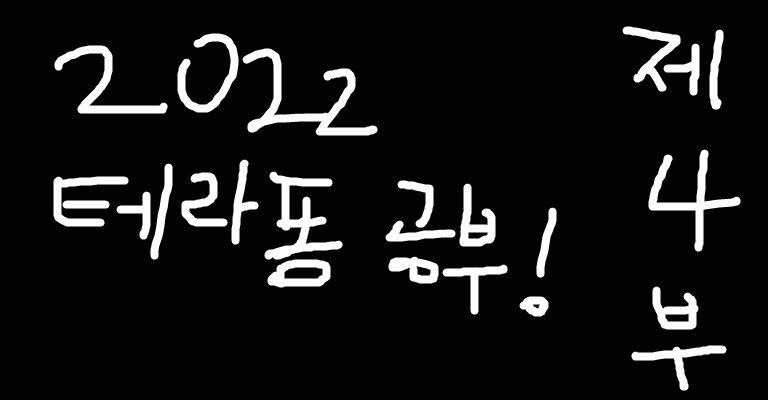 2022
테라폼 공부!
제
4
부